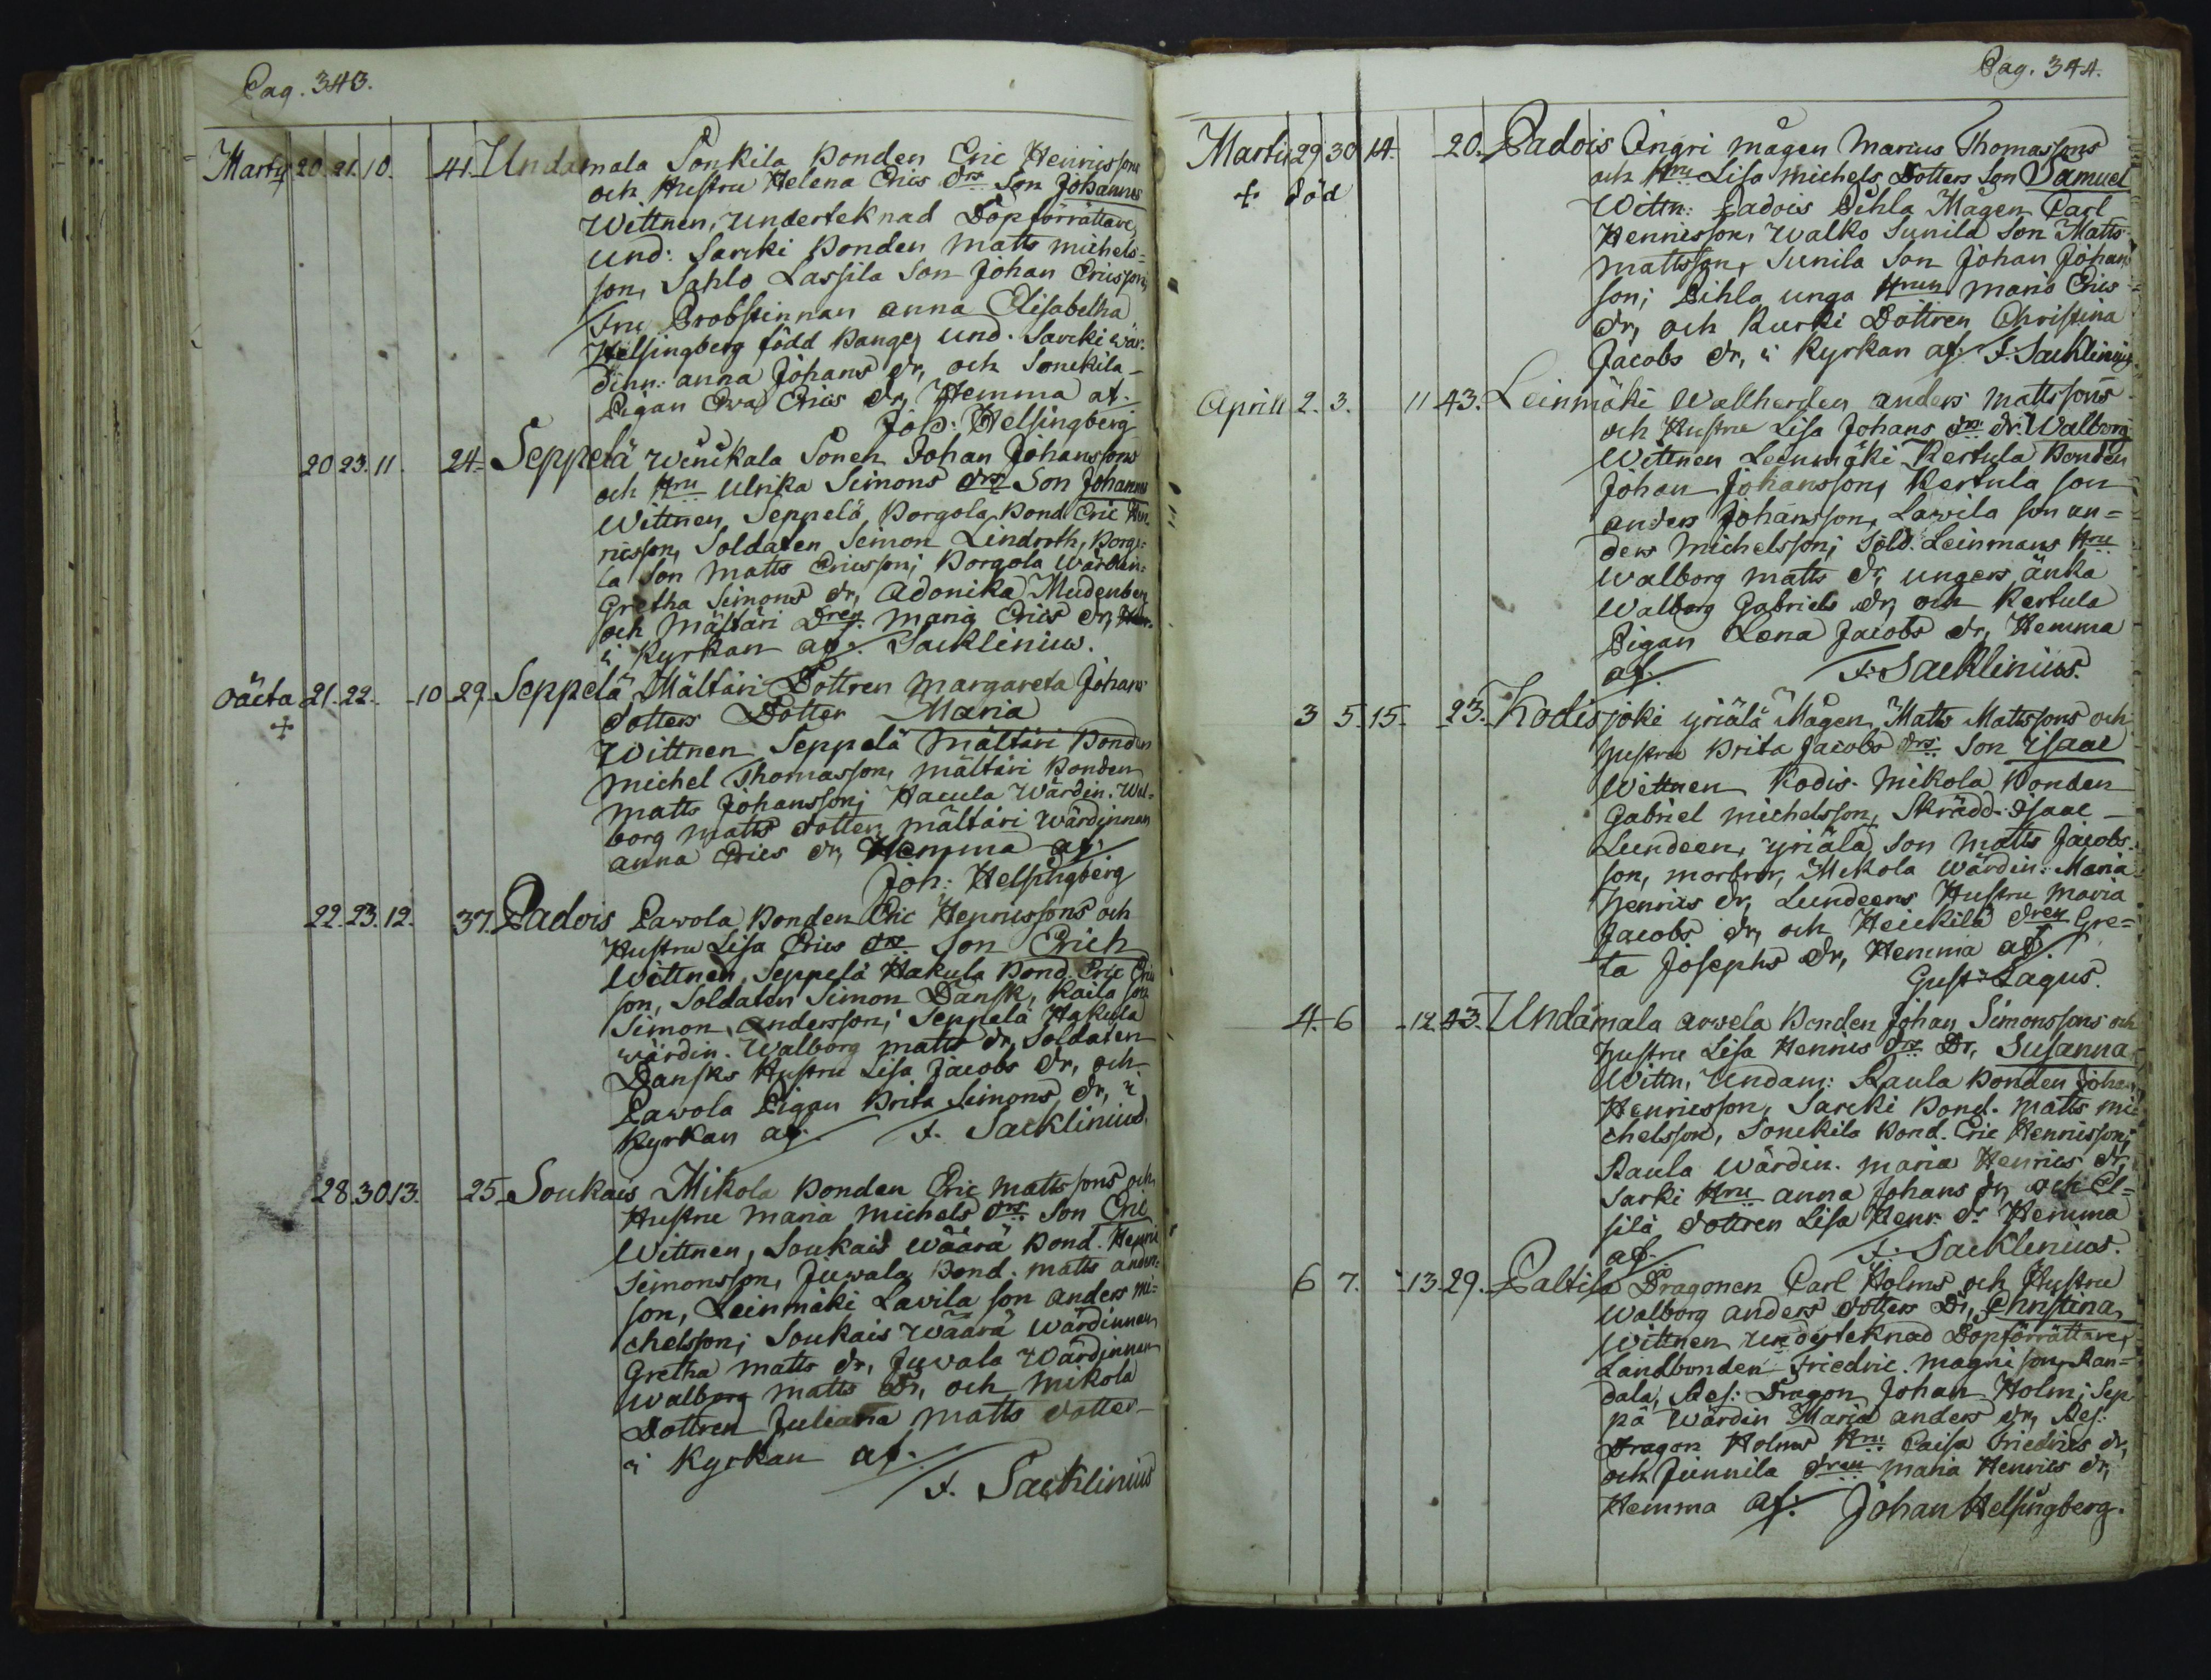 Pag. 343.
Martij 20. 21. 10. 41. Undamala Sonkila Bonden Eric Henricssons
och Hustru Helena Erics drs Son Johannes
Wittnen, underteknad Döpförrättare,
und: Sarcki Bonden Matts Michels=
son, Sahlo Lassila Son Johan Ericsson;
Fru Probstinnan Anna Elisabetha
Helsingberg född Bange, und. Sarcki wär=
dinn: Anna Johans dr, och Sonckila
Pigan Ewa Erics dr, Hemma af.
Joh: Helsingberg
20 23. 11. 24. Seppelä Winickala Sonen Johan Johanssons
och Hru Ulrika Simons drs Son Johannes
Wittnen, Seppelä Borgola Bond. Eric Hen=
ricsson, Soldaten Simon Lindroth, Borgo=
la Son Matts Ericsson; Borgola Wärdin:
Gretha Simons dr, Adonika Mudenberg
och Mältäri Dren Maria Erics dr,
i Kyrkan af. Sacklinius.
oäcta 21. 22. 10 29. Seppelä Mältäri Dottren Margareta Johans
+ dotters Dotter Maria
Wittnen Seppelä Mältäri Bonden
Michel Thomasson, Mältäri Bonden
Matts Johansson; Hacula Wärdin. Wal=
borg Matts dotter, Mältäri Wärdinnan
Anna Erics dr, Hemma af.
Joh: Helsingberg
22. 23. 12. 37. Padois Pawola Bonden Eric Henricssons och
Hustru Lisa Erics drs Son Erich
Wittnen, Seppelä Hakula Bond. Eric Erics
son, Soldaten Simon Dansk, Kaila son
Simon Andersson; Seppelä Hakula
wärdin. Walborg Matts dr, Soldaten
Dansks Hustru Lisa Jacobs dr, och
Pawola Pigan Brita Simons dr, i
Kyrkan af. F. Sacklinius.
28. 30. 13. 25. Soukais Mikola Bonden Eric Mattssons och
Hustru Maria Michels drs Son Eric
Wittnen, Soukais Wäärä Bond. Henric
Simonsson, Juwala Bond. Matts Anders=
son, Leinmäki Lavila son Anders Mi=
chelsson; Soukais Wäärä Wärdinnan
Gretha Matts dr, Juvala Wärdinnan
Walborg Matts Dr, och Mikola
Dottren Juliana Matts dotter
i Kyrkan af.
F. Sacklinius
Pag. 344.
Martij 29 30 14. 20. Padois Ingri Mågen Marcus Thomassons
och Hru Lisa Michels Dotters Son Samuel
+ död
Wittn: Padois Pihla Mågen Carl
Henricsson, Walko Sunila Son Matts
Mattsson, Sunila Son Johan Johans
son; Pihla unga Hrun Maria Erics
dr, och Kurki Dottren Christina
Jacobs dr, i Kyrkan af. F. Sacklinius.
Aprill 2. 3. 11 43. Leinmäki Wallherden Anders Mattssons
och Hustru Lisa Johans drs dr. Walborg
Wittnen Leinmäki Kertula Bonden
Johan Johansson, Kertula son
Anders Johansson, Lawila son An=
ders Michelsson; Sold. Leinmans Hru
Walborg Matts dr, Ungers änka
Walborg Gabriels dr, och Kertula
Pigan Lena Jacobs dr, Hemma
af. F. Sacklinius.
3 5. 15. 23. Kodisjoki Yriälä Mågen Matts Mattssons och
hustru Brita Jacobs drs Son Isaac
Wittnen Kodis. Mikola Bonden
Gabriel Michelsson, Skrädd. Isaac
Lundeen, Yriälä Son Matts Jacobs
son, morbror, Mikola Wärdin: Maria
Henrics dr, Lundeens Hustru Maria
Jacobs dr, och Heickilä dren Gre=
ta Josephs dr, Hemma af.
Gust: Lagus.
4. 6 12 43. Undamala Arwela Bonden Johan Simonssons och
hustru Lisa Henrics drs Dr, Susanna
Wittn, Undam: Raula Bonden Johan
Henricsson, Sarcki Bond. Matts Mi=
chelsson, Sonckila Bond. Eric Henricsson;
Raula Wärdin. Maria Henrics dr,
Sarki Hru Anna Johans dr, och El=
silä dottren Lisa Henr. dr Hemma
af. F. Sacklinius.
6 7. 13. 29. Paltila Dragonen Carl Holms och Hustru
Walborg Anders dotters Dr, Christina,
Wittnen underteknad Döpförrättare,
Landbonden Friedric Magnison, Ran=
dala, Res: Dragon Johan Holm; Sep
pä Wärdin Maria Anders dr, Res:
Dragon Holms Hru Caisa Friedrics dr,
och Junnila dren Maria Henrics dr,
Hemma af. Johan Helsingberg.